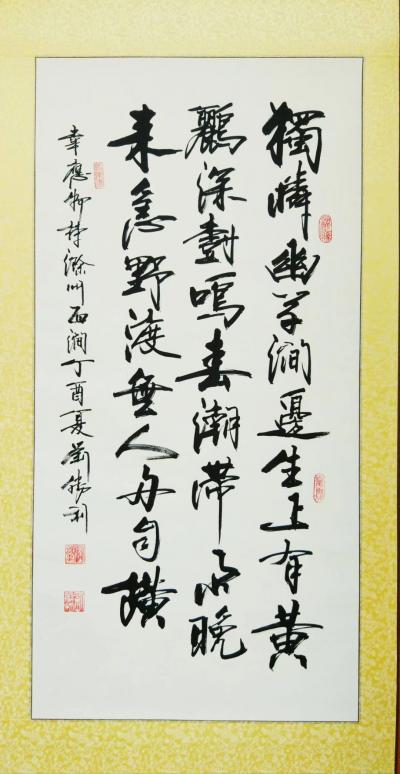 獨憐幽草澗邊生上有黃
鸝深樹鳴春潮帶雨晚
來急野渡無人舟自橫
韋應物詩滁州西澗丁酉夏劉勝利